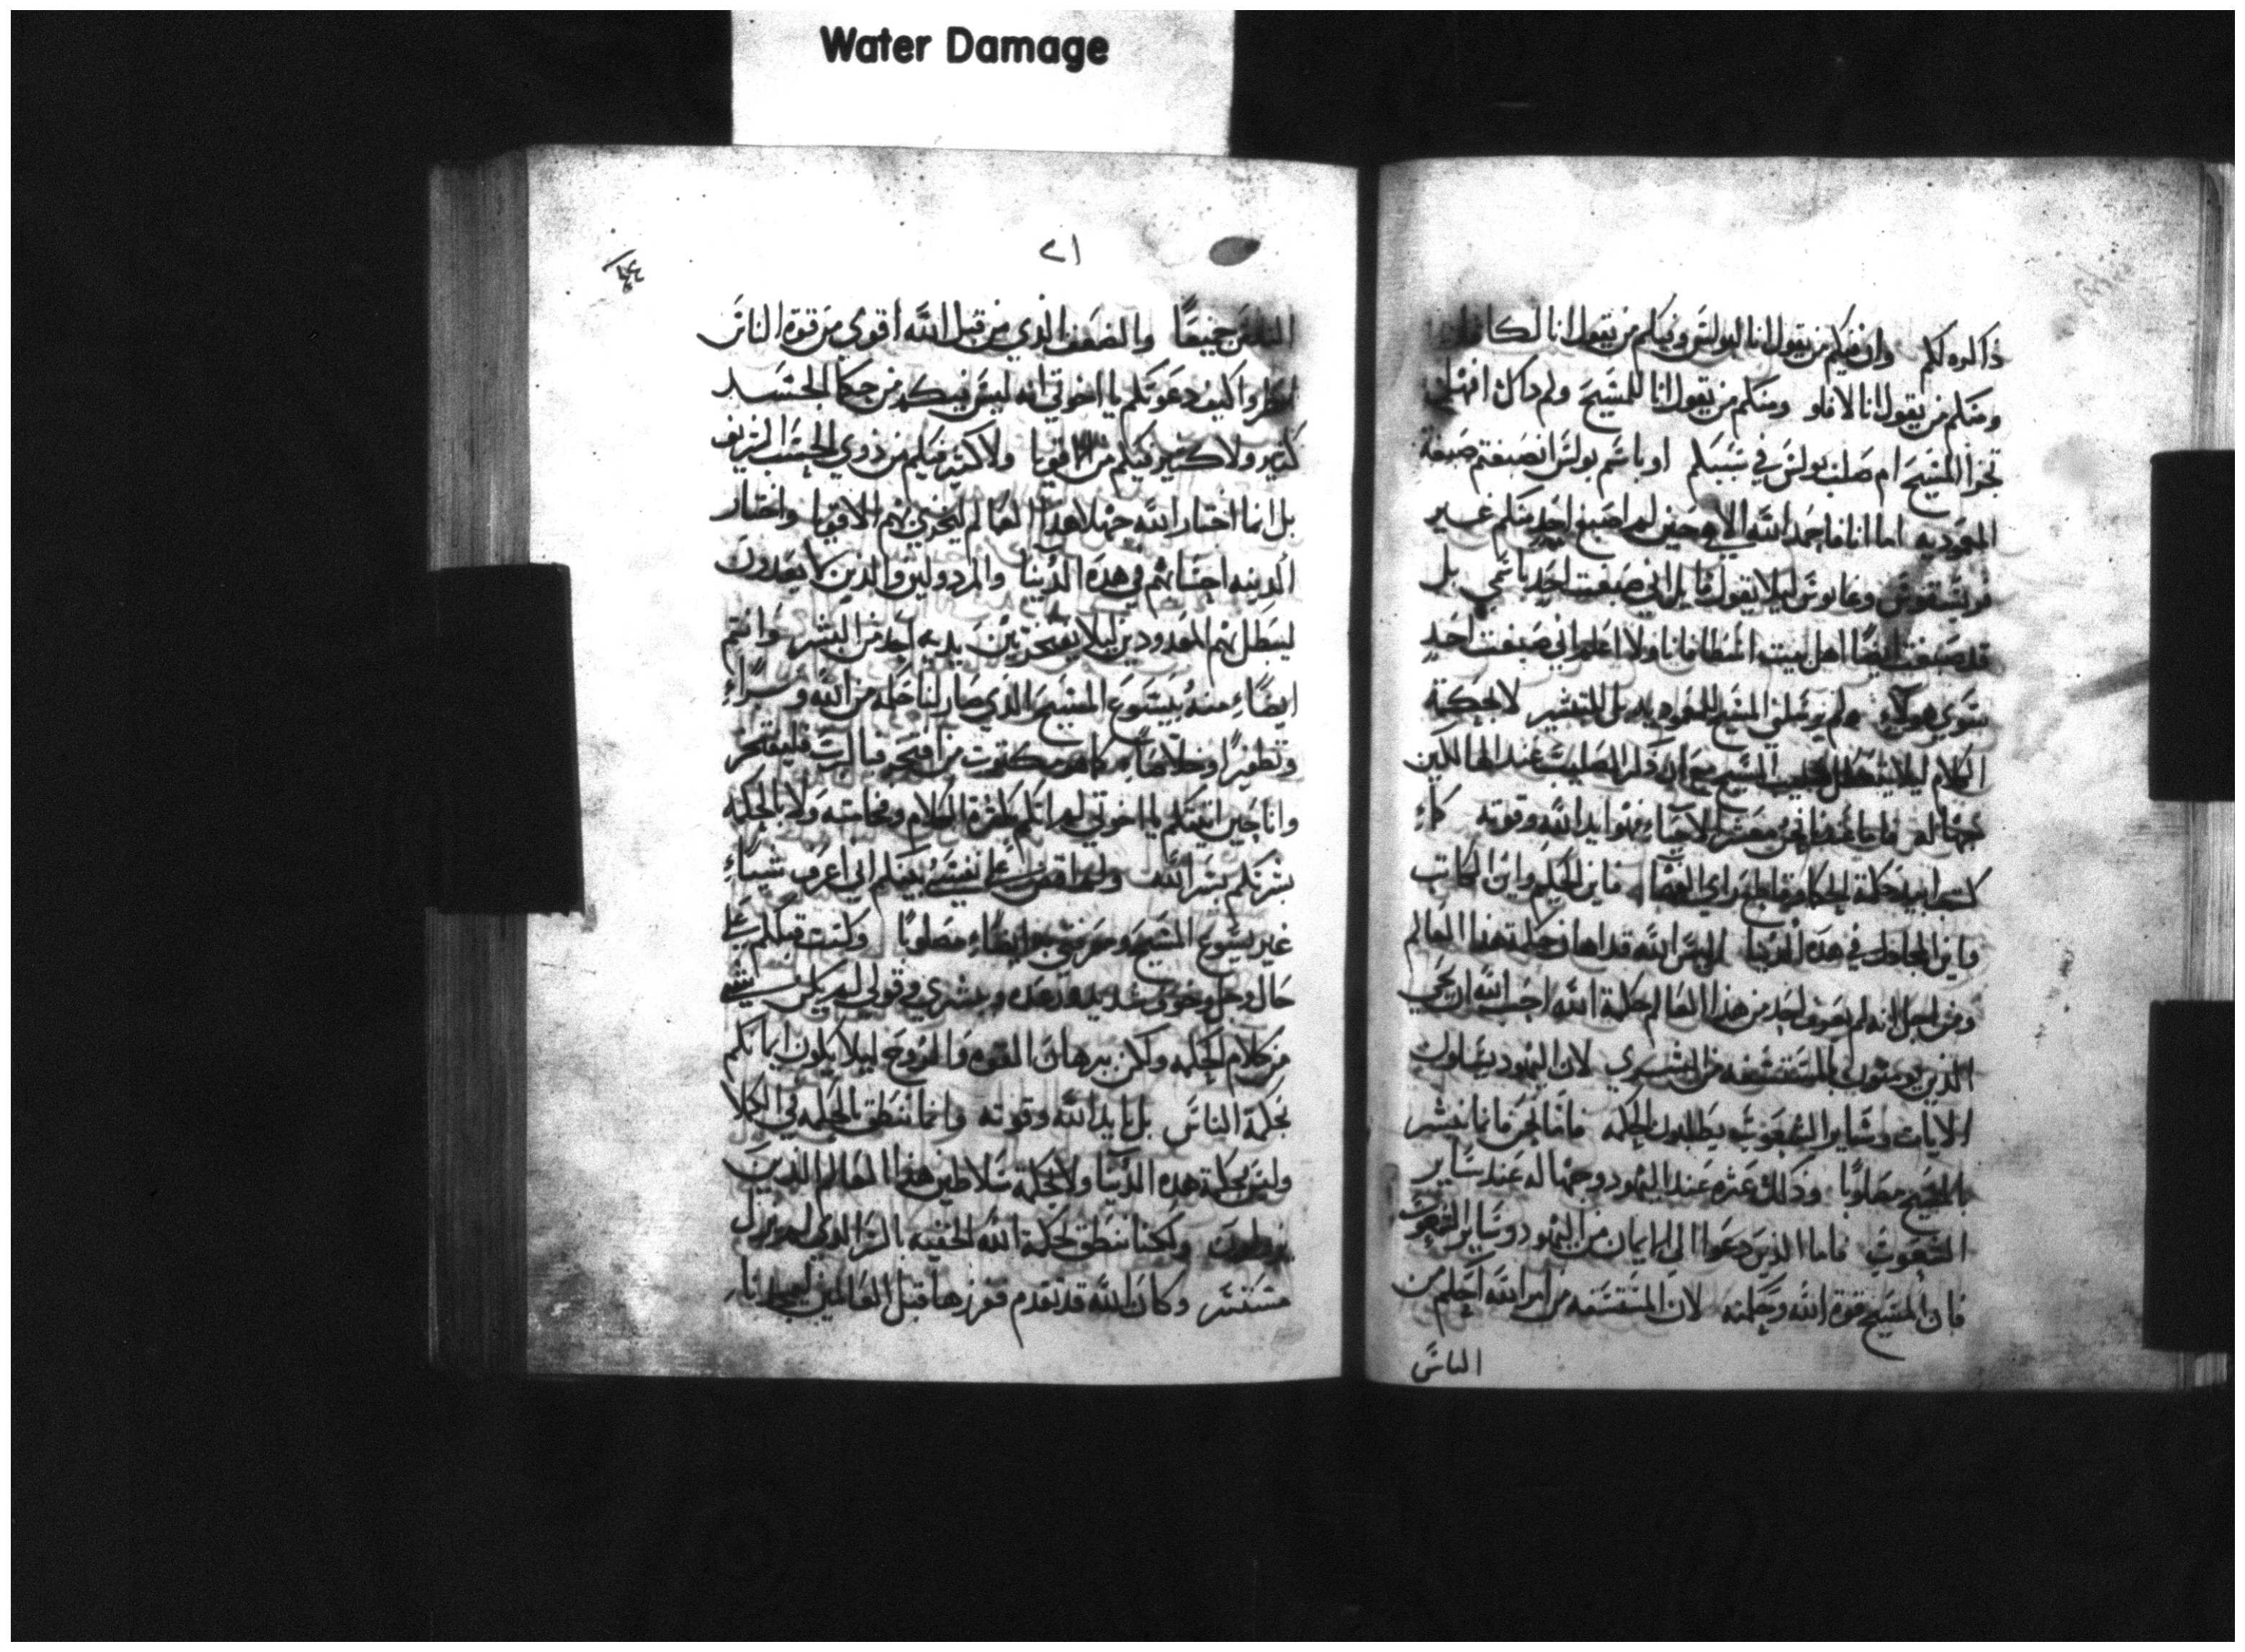 Water Damage
ذاكره لكم وان فيكم من يقول انا لبولس وفيكم من يقول انا لكافا
ومنكم من يقول انا لافلو ومنكم من يقول انا للمسيح ولم ذاك افهل
تجزا المسيح ام صلب بولس في سببكم او باسم بولس انصبغتم صبغة
المعموديه اما انا فاحمد الله الاهي حين لم اصبغ احد منكم غير
قريسقوس وغايوس ليلا يقول قايل اني صبغت احد باسمي بل
قد صبغت ايضا اهل بيت اسطافانا ولا اعلم اني صبغت احد
سوي هولاي ولم يرسلني المسيح للمعموديه بل للتبشير لا بحكمة
الكلام ليلا صليب المسيح ذكر الصليب عند الهالكين
جهاله فاما عندنا نحن معشر الاحياء فهو ايد الله وقوته كما
كتب ابيد حكمة الحكما راي الفهما فاين الحكيم واين الكاتب
فاين المجادل في هذه الدنيا اليس الله قد اهان حكمة هذا العالم
ومن اجل انه لم يعرف احد من هذا العالم حكمة الله احب الله ان يحيي
الذين يومنون بالمستسفه من البشري لان اليهود يسلون
الايات وساير الشعوب يطلبون الحكمه فاما نحن فانما نبشر
بالمسيح مصلوبا وذلك عثره عند اليهود وجهاله عند ساير
الشعوب فاما الذين دعوا الي الايمان من اليهود وساير الشعوب
فان المسيح قوة الله وحكمته لان المستسفه من امر الله احكم من
الناس
٢١
الناس جميعا والضعف الذي من قبل الله اقوي من قوة الناس
انظروا كيف دعوتكم يا اخوتي انه ليس فيكم من حكما الجسد
كثير ولا كثير فيكم من الاقويا ولا كثير فيكم من ذوي الحسب الشريف
بل انما اختار الله جهلا هذا العالم ليخزي بهم الاقويا واختار
الدنيه احسابهم في هذه الدنيا والمردولين والذين لا يعدون
ليبطل بهم المعدودين ليلا يفتخر بين يديه احد من البشر وانتم
ايضاء منه بيسوع المسيح الذي صار لنا حكمه من الله وبرا
وتطهيرا وخلاصا كما هو مكتوب من افتخر فبالرب فليفتخر
وانا حين اتيتكم يا اخوتي لم اتكم بكثرة الكلام وفخامته ولا بالحكمه
بشرتكم بسر الله ولم اقض علي نفسي بينكم اني اعرف شياء
غير يسوع المسيح ايضاء مصلوبا وكنت قبلكم علي
حال وجل وخوف شديد ورعده وبشري وقولي لم يكن بشي
من كلام الحكمه ولكن ببرهان القوه والروح ليلا يكون ايمانكم
بحكمة الناس بل بايد الله وقوته وانما ننطق بالحكمه في الكلا
وليس بحكمة هذه الدنيا ولا بحكمة سلاطين هذا العالم الذين
يبطلون ولكننا ننطق بحكمة الله الخفيه بالسر الذي لم يزل
مستتر وكان الله قد تقدم ففرزها قبل العالمين